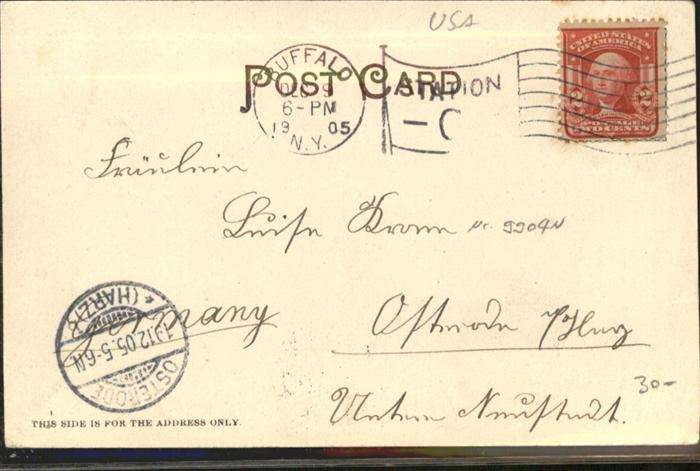 USA
POST CARD
BUFFALO
DEC 9
6-PM
1905
N.Y.
STATION
C
UNITED STATES
OF AMERICA
2 2
POSTAGE
TWO CENTS
Fräulein
Luise Krone
Germany
Osterode
Untere Neustadt.
30-
OSTERODE
19.12.05.5-6N.
* (HARZ) *
THIS SIDE IS FOR THE ADDRESS ONLY.